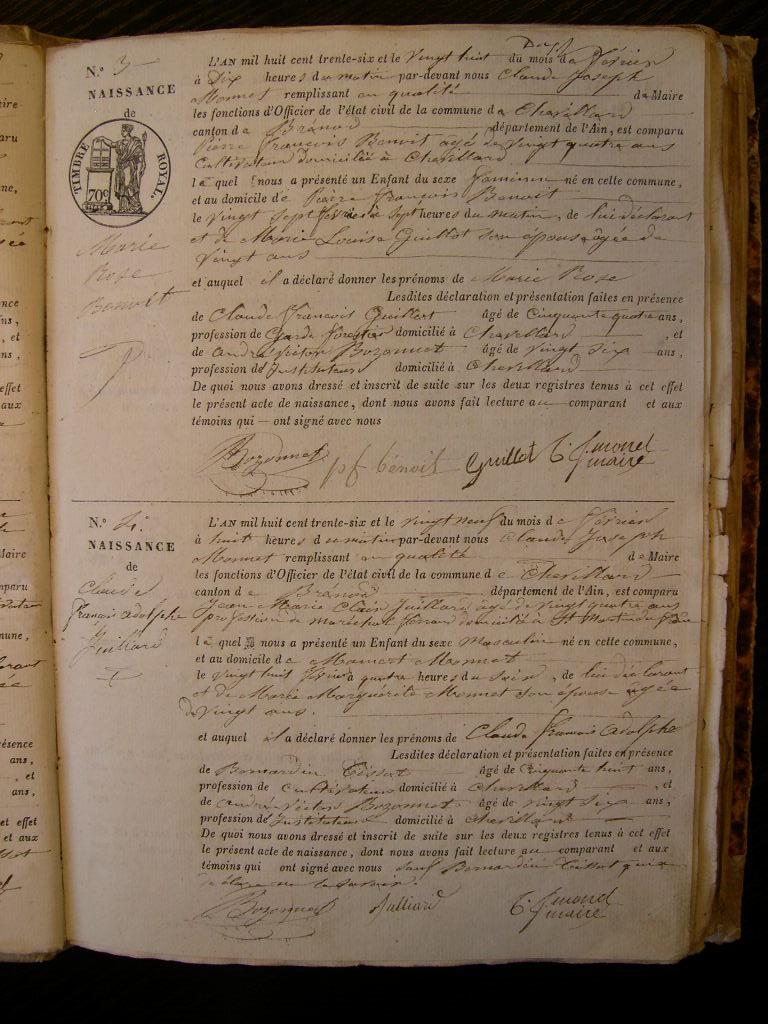 N.° 3
NAISSANCE
de
TIMBRE ROYAL.
70c
Marie
Rose
Benoit
L'AN mil huit cent trente-six et le vingt huit du mois de Février
à Dix heures du matin par-devant nous Claude Joseph
Monnet remplissant en qualité de Maire
les fonctions d'Officier de l'état civil de la commune de Chevillard
canton de Brénod département de l'Ain, est comparu
Pierre François Benoit âgé de vingt quatre ans
Cultivateur domicilié à Chevillard
lequel nous a présenté un Enfant du sexe féminin né en cette commune,
et au domicile de Pierre François Benoit
le vingt sept février à sept heures du matin, de lui déclarant
et de Marie Louise Guillot son épouse, âgée de
vingt ans
et auquel il a déclaré donner les prénoms de Marie Rose
Lesdites déclaration et présentation faites en présence
de Claude François Guillot âgé de Cinquante quatre ans,
profession de Garde forestier domicilié à Chevillard, et
de andré Victor Bozonnet âgé de vingt six ans,
profession de Instituteur domicilié à Chevillard
De quoi nous avons dressé et inscrit de suite sur les deux registres tenus à cet effet
le présent acte de naissance, dont nous avons fait lecture au comparant et aux
témoins qui ont signé avec nous
Bozonnet pf benoit Guillot C. J. monet
maire
N.° 4.
NAISSANCE
de
Claude
François adolphe
Juillard
L'AN mil huit cent trente-six et le vingt neuf du mois de Février
à huit heures du matin par-devant nous Claude Joseph
Monnet remplissant en qualité de Maire
les fonctions d'Officier de l'état civil de la commune de Chevillard
canton de Brénod département de l'Ain, est comparu
Jean Marie Juillard, âgé de vingt quatre ans
profession de maréchal ferrant domicilié à St Martin du
lequel nous a présenté un Enfant du sexe Masculin né en cette commune,
et au domicile de Mamert Monnet
le vingt huit février à quatre heures du soir, de lui déclarant
et de Marie Marguerite Monnet son épouse agée
de vingt ans.
et auquel il a déclaré donner les prénoms de Claude François adolphe
Lesdites déclaration et présentation faites en présence
de Bernardin Tissot âgé de Cinquante huit ans,
profession de Cultivateur domicilié à Chevillard, et
de andré Victor Bozonnet âgé de vingt six ans,
profession de Instituteur domicilié à Chevillard
De quoi nous avons dressé et inscrit de suite sur les deux registres tenus à cet effet
le présent acte de naissance, dont nous avons fait lecture au comparant et aux
témoins qui ont signé avec nous sauf Bernardin Tissot qui a
déclaré ne le savoir.
Bozonnet Julliard C. J. monet
maire